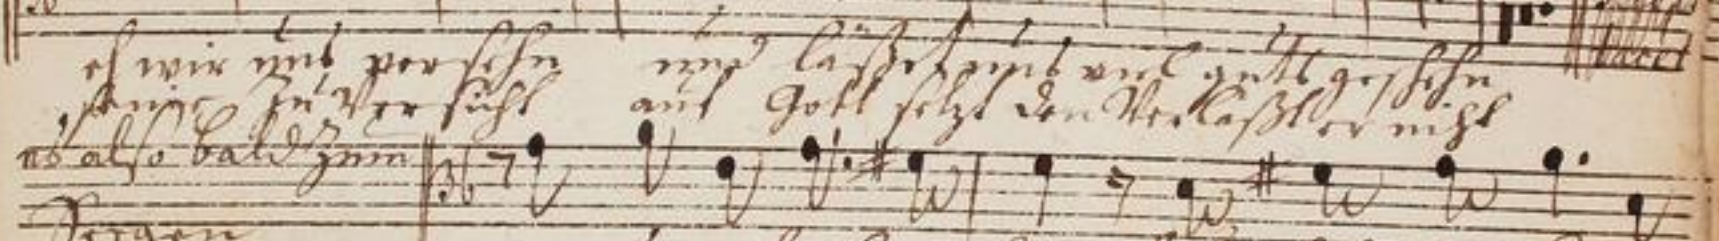 eh wir uns versehn und läßet uns viel guts geschehn
seine Zuversicht auf Gott setzt den Verläßt er nicht
also bald zum
Sorgen